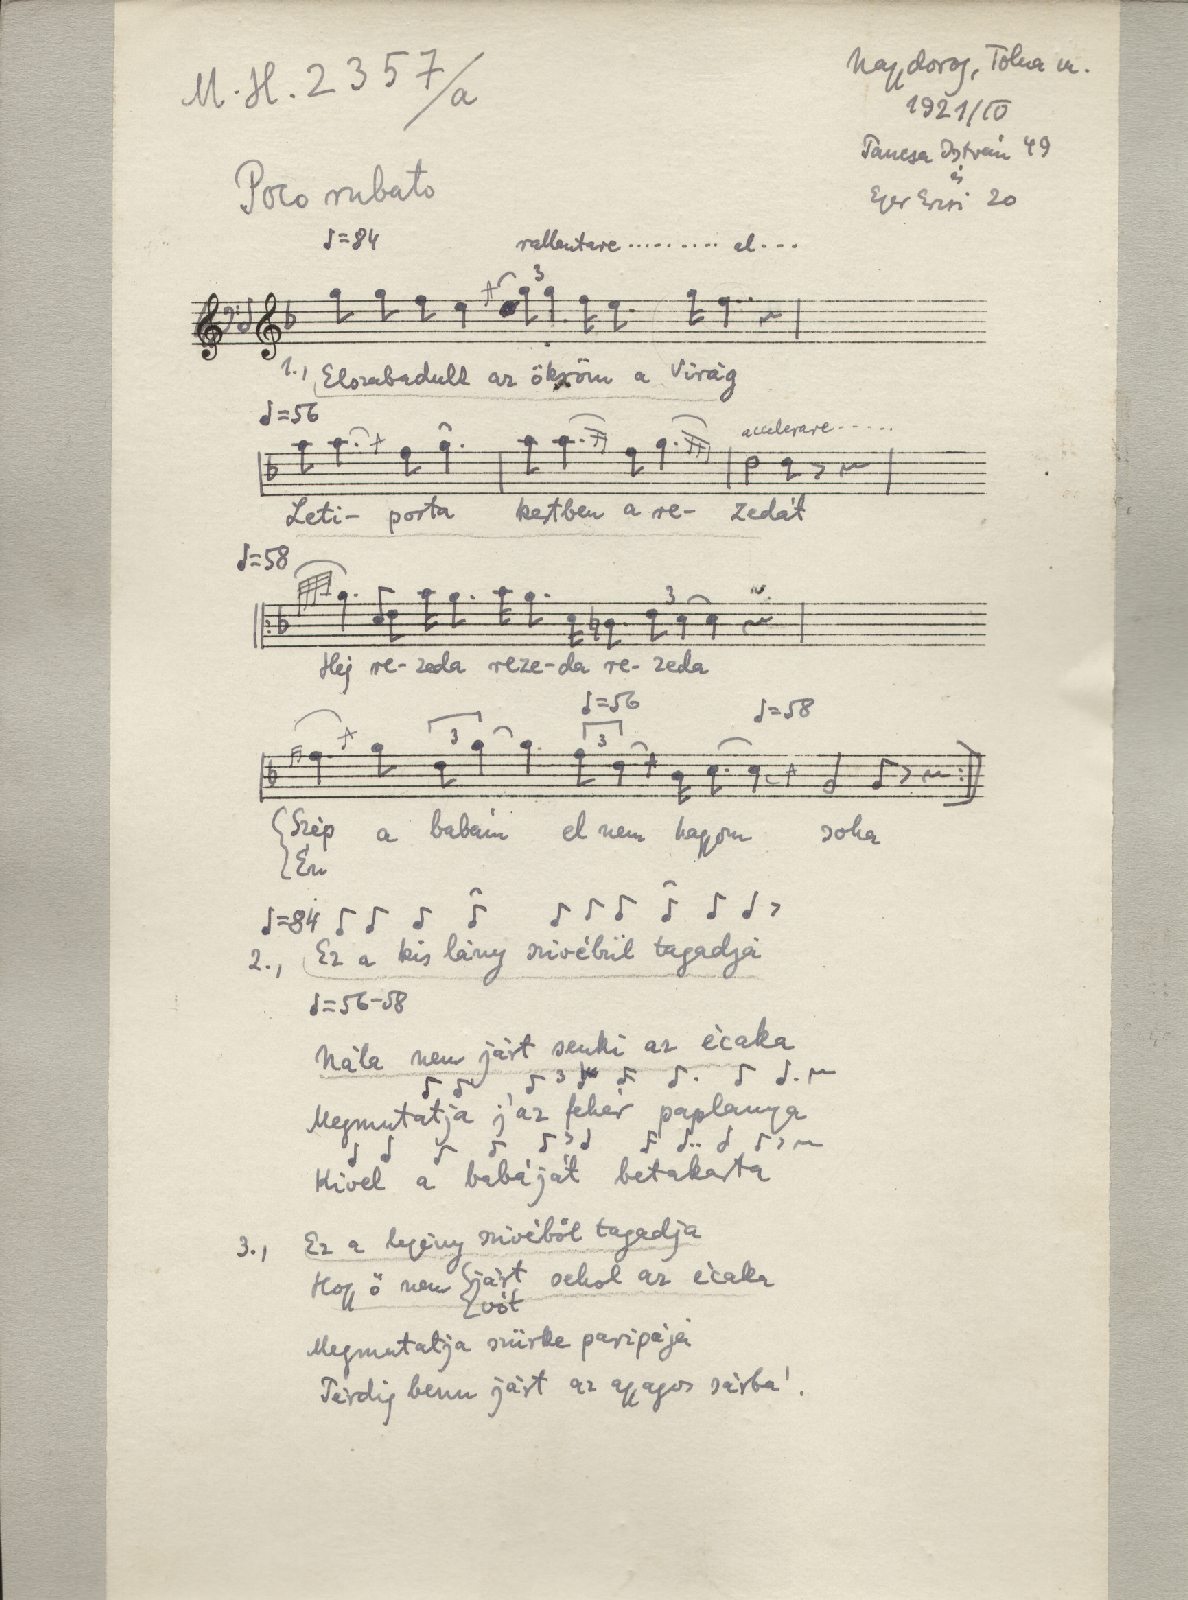 M.H. 2357/a
Nagydorog, Tolna m.
1921/IV
Tancsa István 49
és
Eger Erzsi 20
Poco rubato
♩=84
rallentare ......... al ...
3
1., Elszabadult az ökröm a virág
♩=56
accelerare ......
Leti- porta kertben a re- zedát
♩=58
3
Hej re- zeda reze-da re- zeda
♩=56 ♩=58
3 3
Szép a babám el nem hagyom soha
Én
♩=84
2., Ez a kis lány szivébül tagadja
♩=56-58
Nála nem járt senki az écaka
3
Megmutatja j'az fehér paplanya
Kivel a babáját betakarta
3., Ez a legény szivéböl tagadja
Hogy ő nem járt sehol az écaka
vót
Megmutatja szürke paripája
Térdig benn járt az agyagos sárba'.